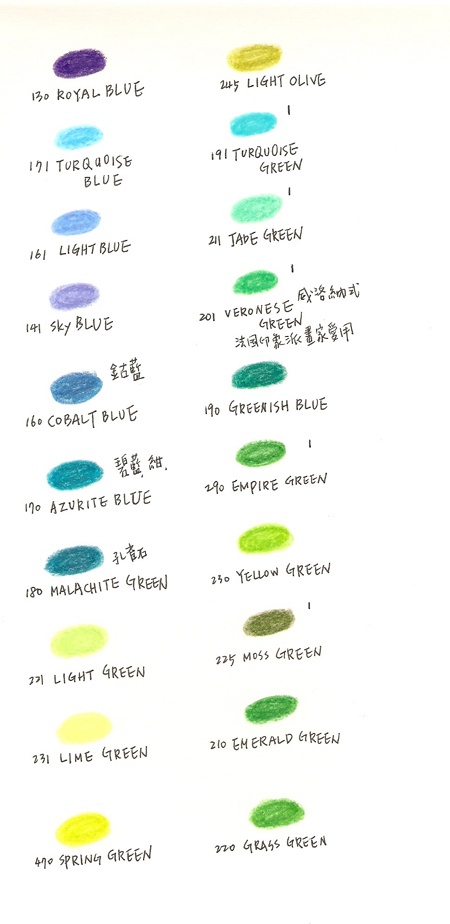 130 ROYAL BLUE
171 TURQUOISE
BLUE
161 LIGHT BLUE
141 SKY BLUE
鈷藍
160 COBALT BLUE
碧藍, 紺.
170 AZURITE BLUE
孔雀石
180 MALACHITE GREEN
221 LIGHT GREEN
231 LIME GREEN
470 SPRING GREEN
245 LIGHT OLIVE
1
191 TURQUOISE
GREEN
1
211 JADE GREEN
1
201 VERONESE 威洛納式
GREEN
法國印象派畫家愛用
190 GREENISH BLUE
1
290 EMPIRE GREEN
230 YELLOW GREEN
1
225 MOSS GREEN
210 EMERALD GREEN
220 GRASS GREEN